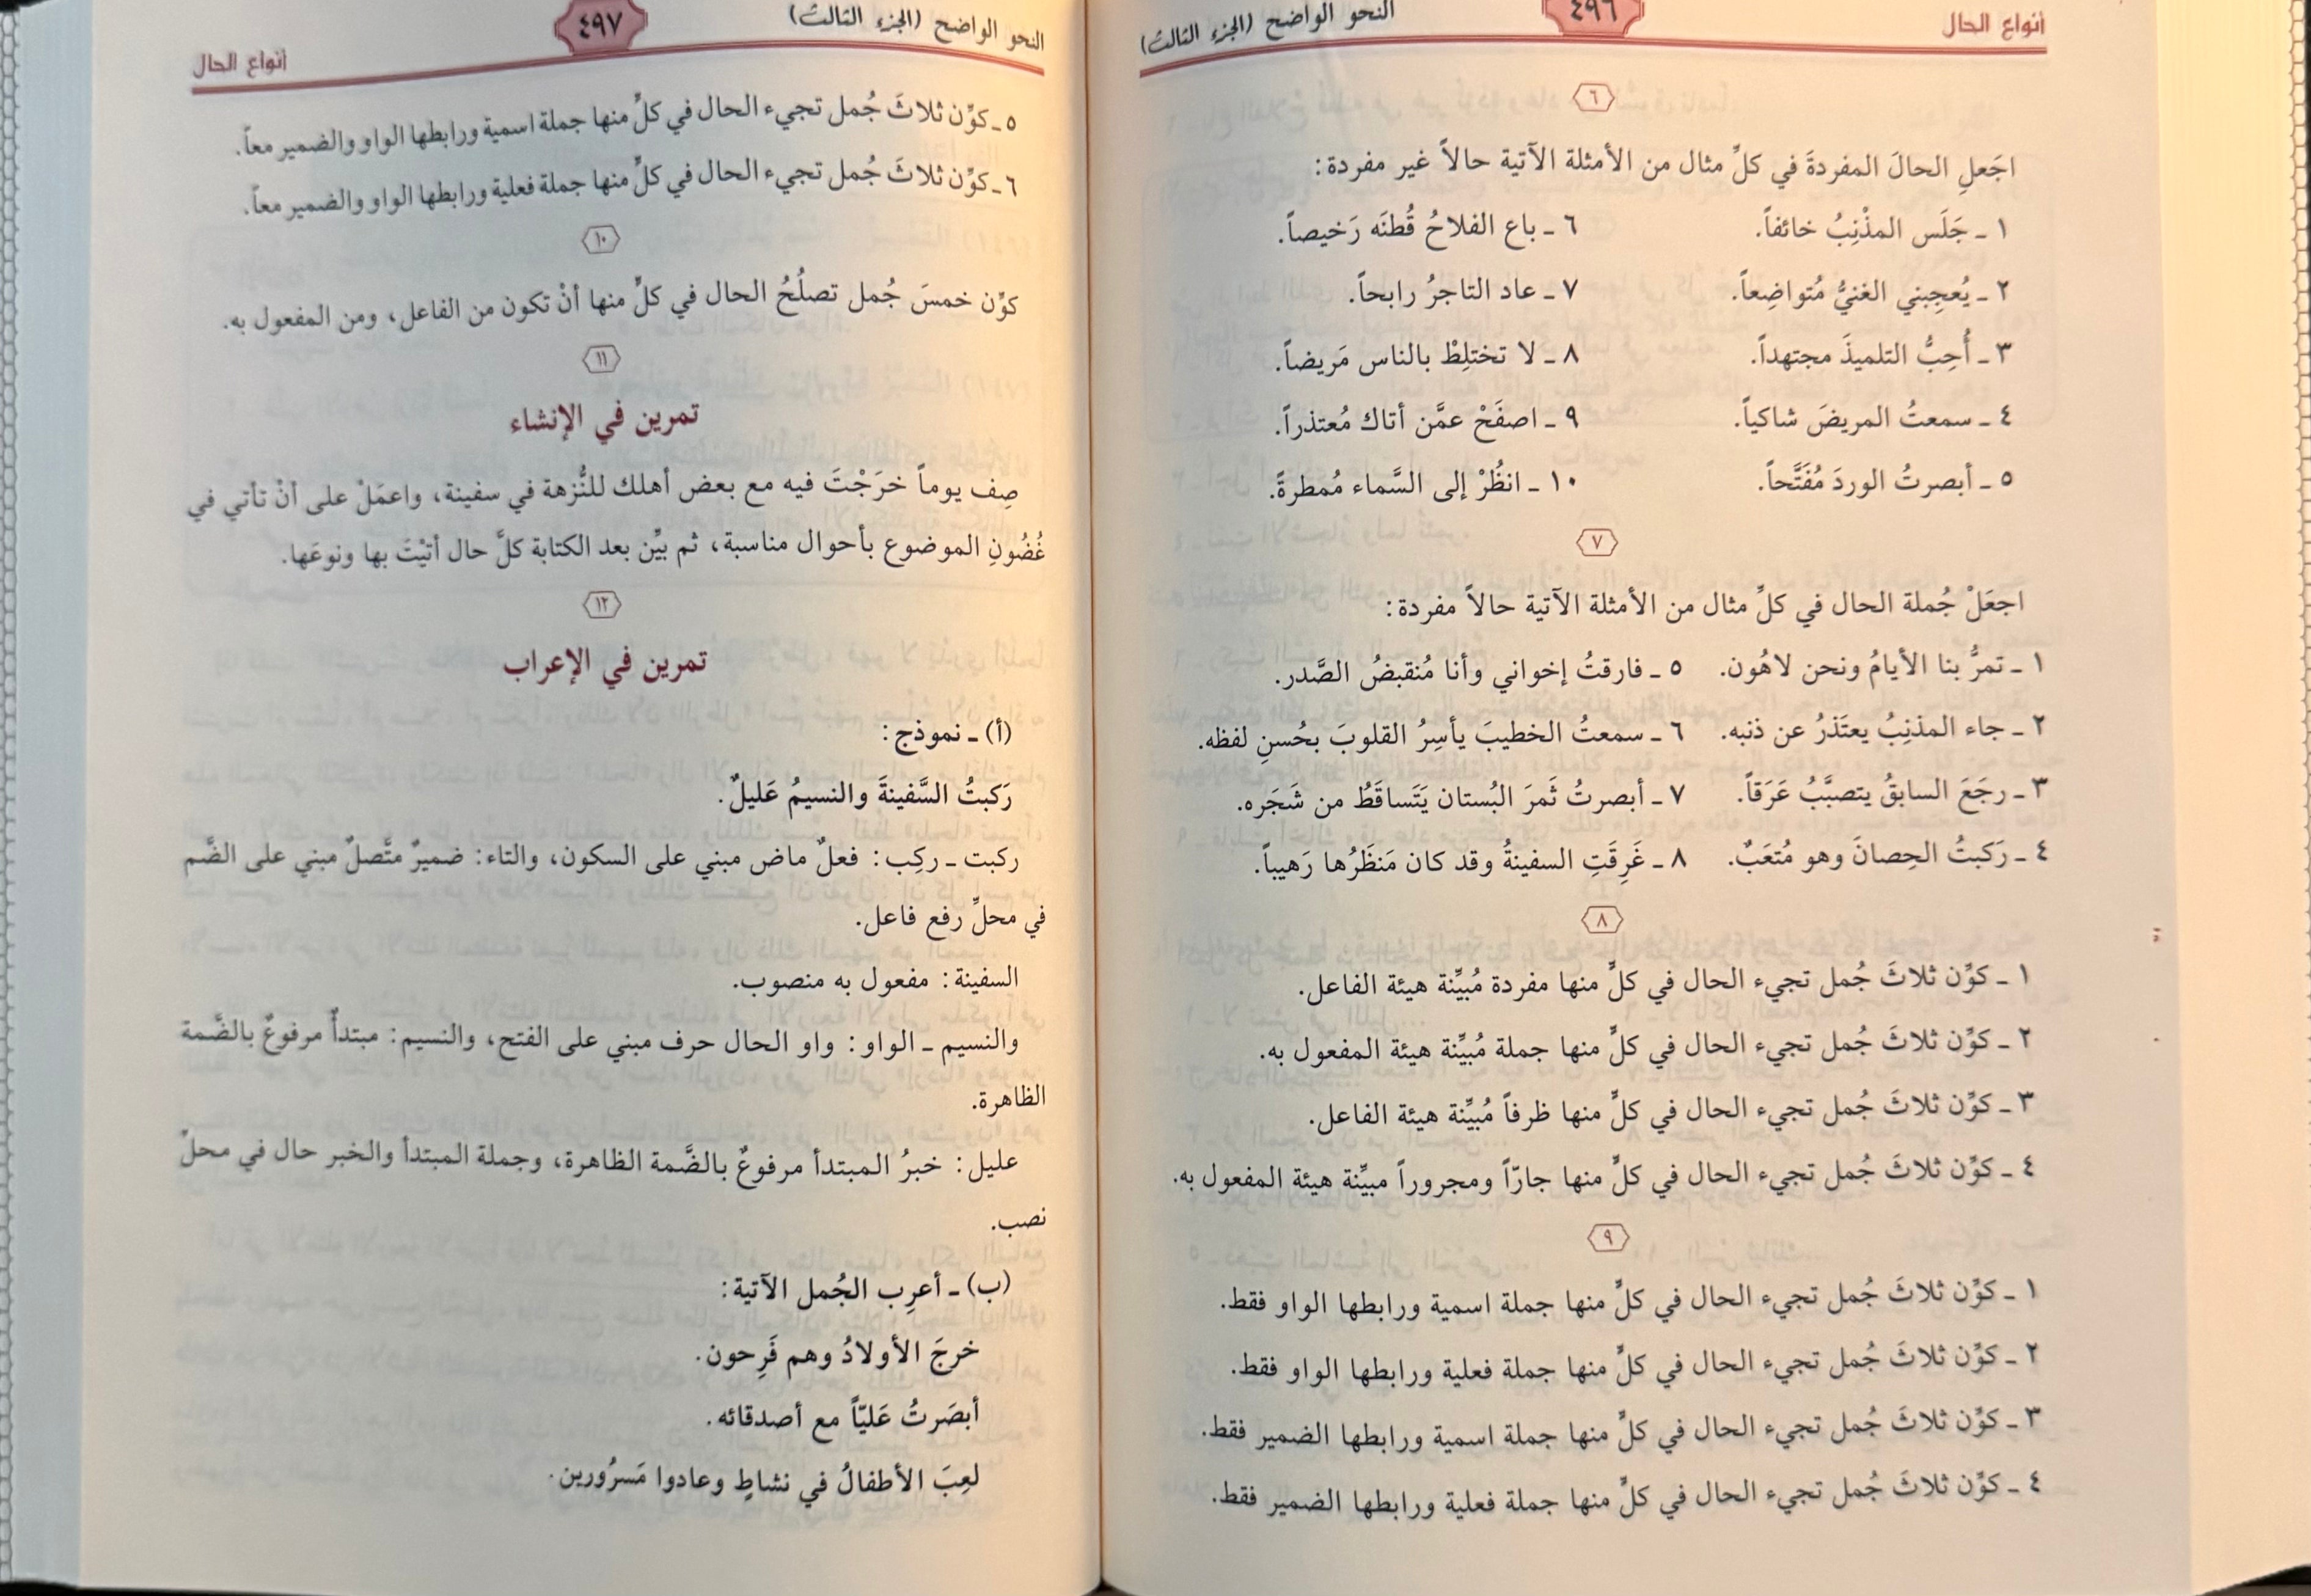 أنواع الحال
٤٩٦
النحو الواضح (الجزء الثالث)
٦
اجَعلِ الحالَ المفردةَ في كلِّ مثال من الأمثلة الآتية حالاً غير مفردة:
١ ـ جَلَس المذْنِبُ خائفاً. ٦ ـ باع الفلاحُ قُطنَه رَخيصاً.
٢ ـ يُعجِبني الغنيُّ مُتواضِعاً. ٧ ـ عاد التاجرُ رابحاً.
٣ ـ أُحِبُّ التلميذَ مجتهداً. ٨ ـ لا تختلِطْ بالناس مَريضاً.
٤ ـ سمعتُ المريضَ شاكياً. ٩ ـ اصفَحْ عمَّن أتاك مُعتذراً.
٥ ـ أبصرتُ الوردَ مُفَتَّحاً. ١٠ ـ انظُرْ إلى السَّماء مُمطرةً.
٧
اجعَلْ جُملة الحال في كلِّ مثال من الأمثلة الآتية حالاً مفردة:
١ ـ تمرُّ بنا الأيامُ ونحن لاهُون. ٥ ـ فارقتُ إخواني وأنا مُنقبضُ الصَّدر.
٢ ـ جاء المذنِبُ يعتَذرُ عن ذنبه. ٦ ـ سمعتُ الخطيبَ يأسِرُ القلوبَ بحُسنِ لفظه.
٣ ـ رجَعَ السابقُ يتصبَّبُ عَرَقاً. ٧ ـ أبصرتُ ثَمرَ البُستان يَتَساقَطُ من شَجَره.
٤ ـ رَكبتُ الحِصانَ وهو مُتعَبٌ. ٨ ـ غَرِقَتِ السفينةُ وقد كان مَنظَرُها رَهيباً.
٨
١ ـ كوِّن ثلاثَ جُمل تجيء الحال في كلٍّ منها مفردة مُبيِّنة هيئة الفاعل.
٢ ـ كوِّن ثلاثَ جُمل تجيء الحال في كلٍّ منها جملة مُبيِّنة هيئة المفعول به.
٣ ـ كوِّن ثلاثَ جُمل تجيء الحال في كلٍّ منها ظرفاً مُبيِّنة هيئة الفاعل.
٤ ـ كوِّن ثلاثَ جُمل تجيء الحال في كلٍّ منها جارّاً ومجروراً مبيِّنة هيئة المفعول به.
٩
١ ـ كوِّن ثلاثَ جُمل تجيء الحال في كلٍّ منها جملة اسمية ورابطها الواو فقط.
٢ ـ كوِّن ثلاثَ جُمل تجيء الحال في كلٍّ منها جملة فعلية ورابطها الواو فقط.
٣ ـ كوِّن ثلاثَ جُمل تجيء الحال في كلٍّ منها جملة اسمية ورابطها الضمير فقط.
٤ ـ كوِّن ثلاثَ جُمل تجيء الحال في كلٍّ منها جملة فعلية ورابطها الضمير فقط.
النحو الواضح (الجزء الثالث)
٤٩٧
أنواع الحال
٥ ـ كوِّن ثلاثَ جُمل تجيء الحال في كلٍّ منها جملة اسمية ورابطها الواو والضمير معاً.
٦ ـ كوِّن ثلاثَ جُمل تجيء الحال في كلٍّ منها جملة فعلية ورابطها الواو والضمير معاً.
١٠
كوِّن خمسَ جُمل تصلُحُ الحال في كلٍّ منها أنْ تكون من الفاعل، ومن المفعول به.
١١
تمرين في الإنشاء
صِف يوماً خرَجْتَ فيه مع بعض أهلك للنُّزهة في سفينة، واعمَلْ على أنْ تأتي في
غُضُونِ الموضوع بأحوال مناسبة، ثم بيِّن بعد الكتابة كلَّ حال أتيْتَ بها ونوعَها.
١٢
تمرين في الإعراب
(أ) ـ نموذج:
رَكبتُ السَّفينةَ والنسيمُ عَليلٌ.
ركبت ـ ركِب: فعلٌ ماض مبني على السكون، والتاء: ضميرٌ متَّصلٌ مبني على الضَّم
في محلِّ رفع فاعل.
السفينة: مفعول به منصوب.
والنسيم ـ الواو: واو الحال حرف مبني على الفتح، والنسيم: مبتدأٌ مرفوعٌ بالضَّمة
الظاهرة.
عليل: خبرُ المبتدأ مرفوعٌ بالضَّمة الظاهرة، وجملة المبتدأ والخبر حال في محلِّ
نصب.
(ب) ـ أعرِب الجُمل الآتية:
خرجَ الأولادُ وهم فَرِحون.
أبصَرتُ عَليّاً مع أصدقائه.
لعِبَ الأطفالُ في نشاطٍ وعادوا مَسرُورين.